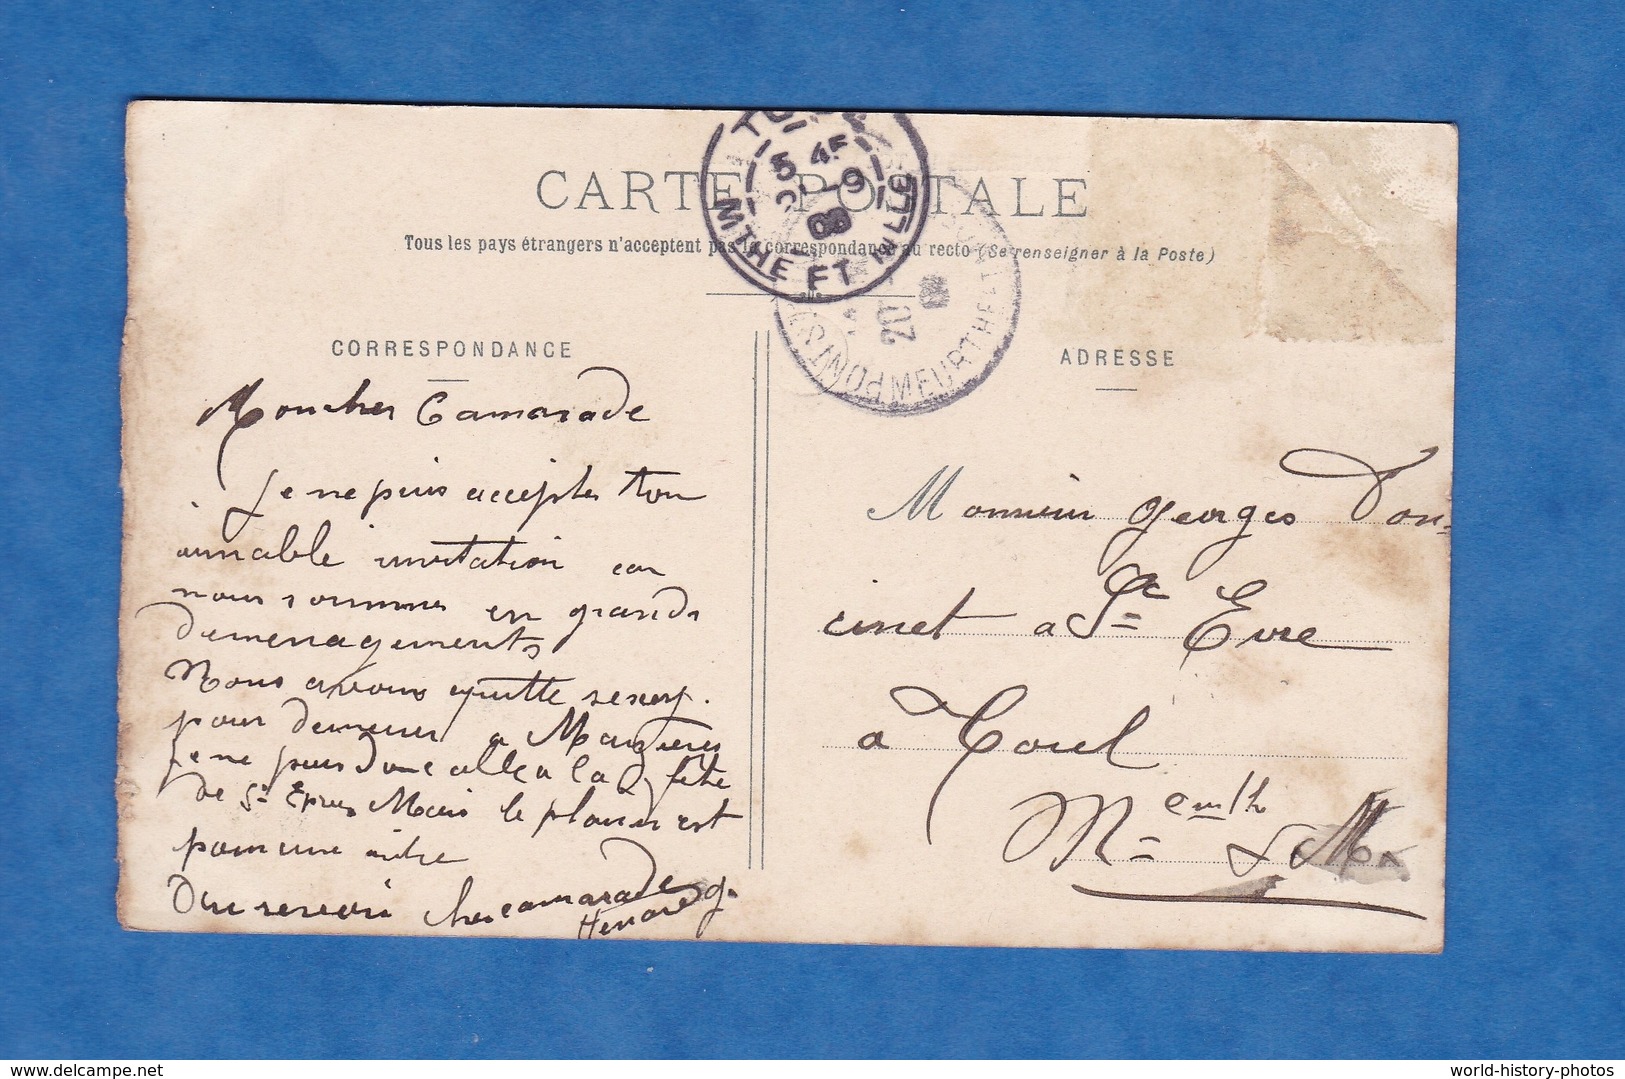 CARTE POSTALE
Tous les pays étrangers n'acceptent pas la correspondance au recto (Se renseigner à la Poste)
TOUL
5 45
-9
09
MTHE ET MLLE
20
PONT S
MEURTHE ET M
CORRESPONDANCE
ADRESSE
Moncher Camarade
Je ne puis accepter ton
aimable invitation car
nous sommes en grands
demenagements
Nous avons quitte sexey.
pour demeurer a Maizières
je ne puis donc aller a la fête
de St Epvre Mais le plaisir est
pour une autre
Au revoir cher camarade
Monsieur Georges Dou-
cinet a St Evre
a Toul
M= et M
www.delcampe.net
world-history-photos